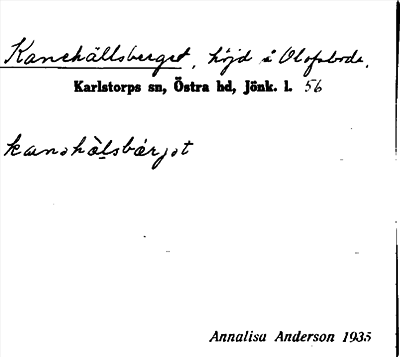 Kanehällsberget, höjd i Olofsbode.
Karlstorps sn, Östra hd, Jönk. l. 56
kanəhälsbärjət
Annalisa Anderson 1935